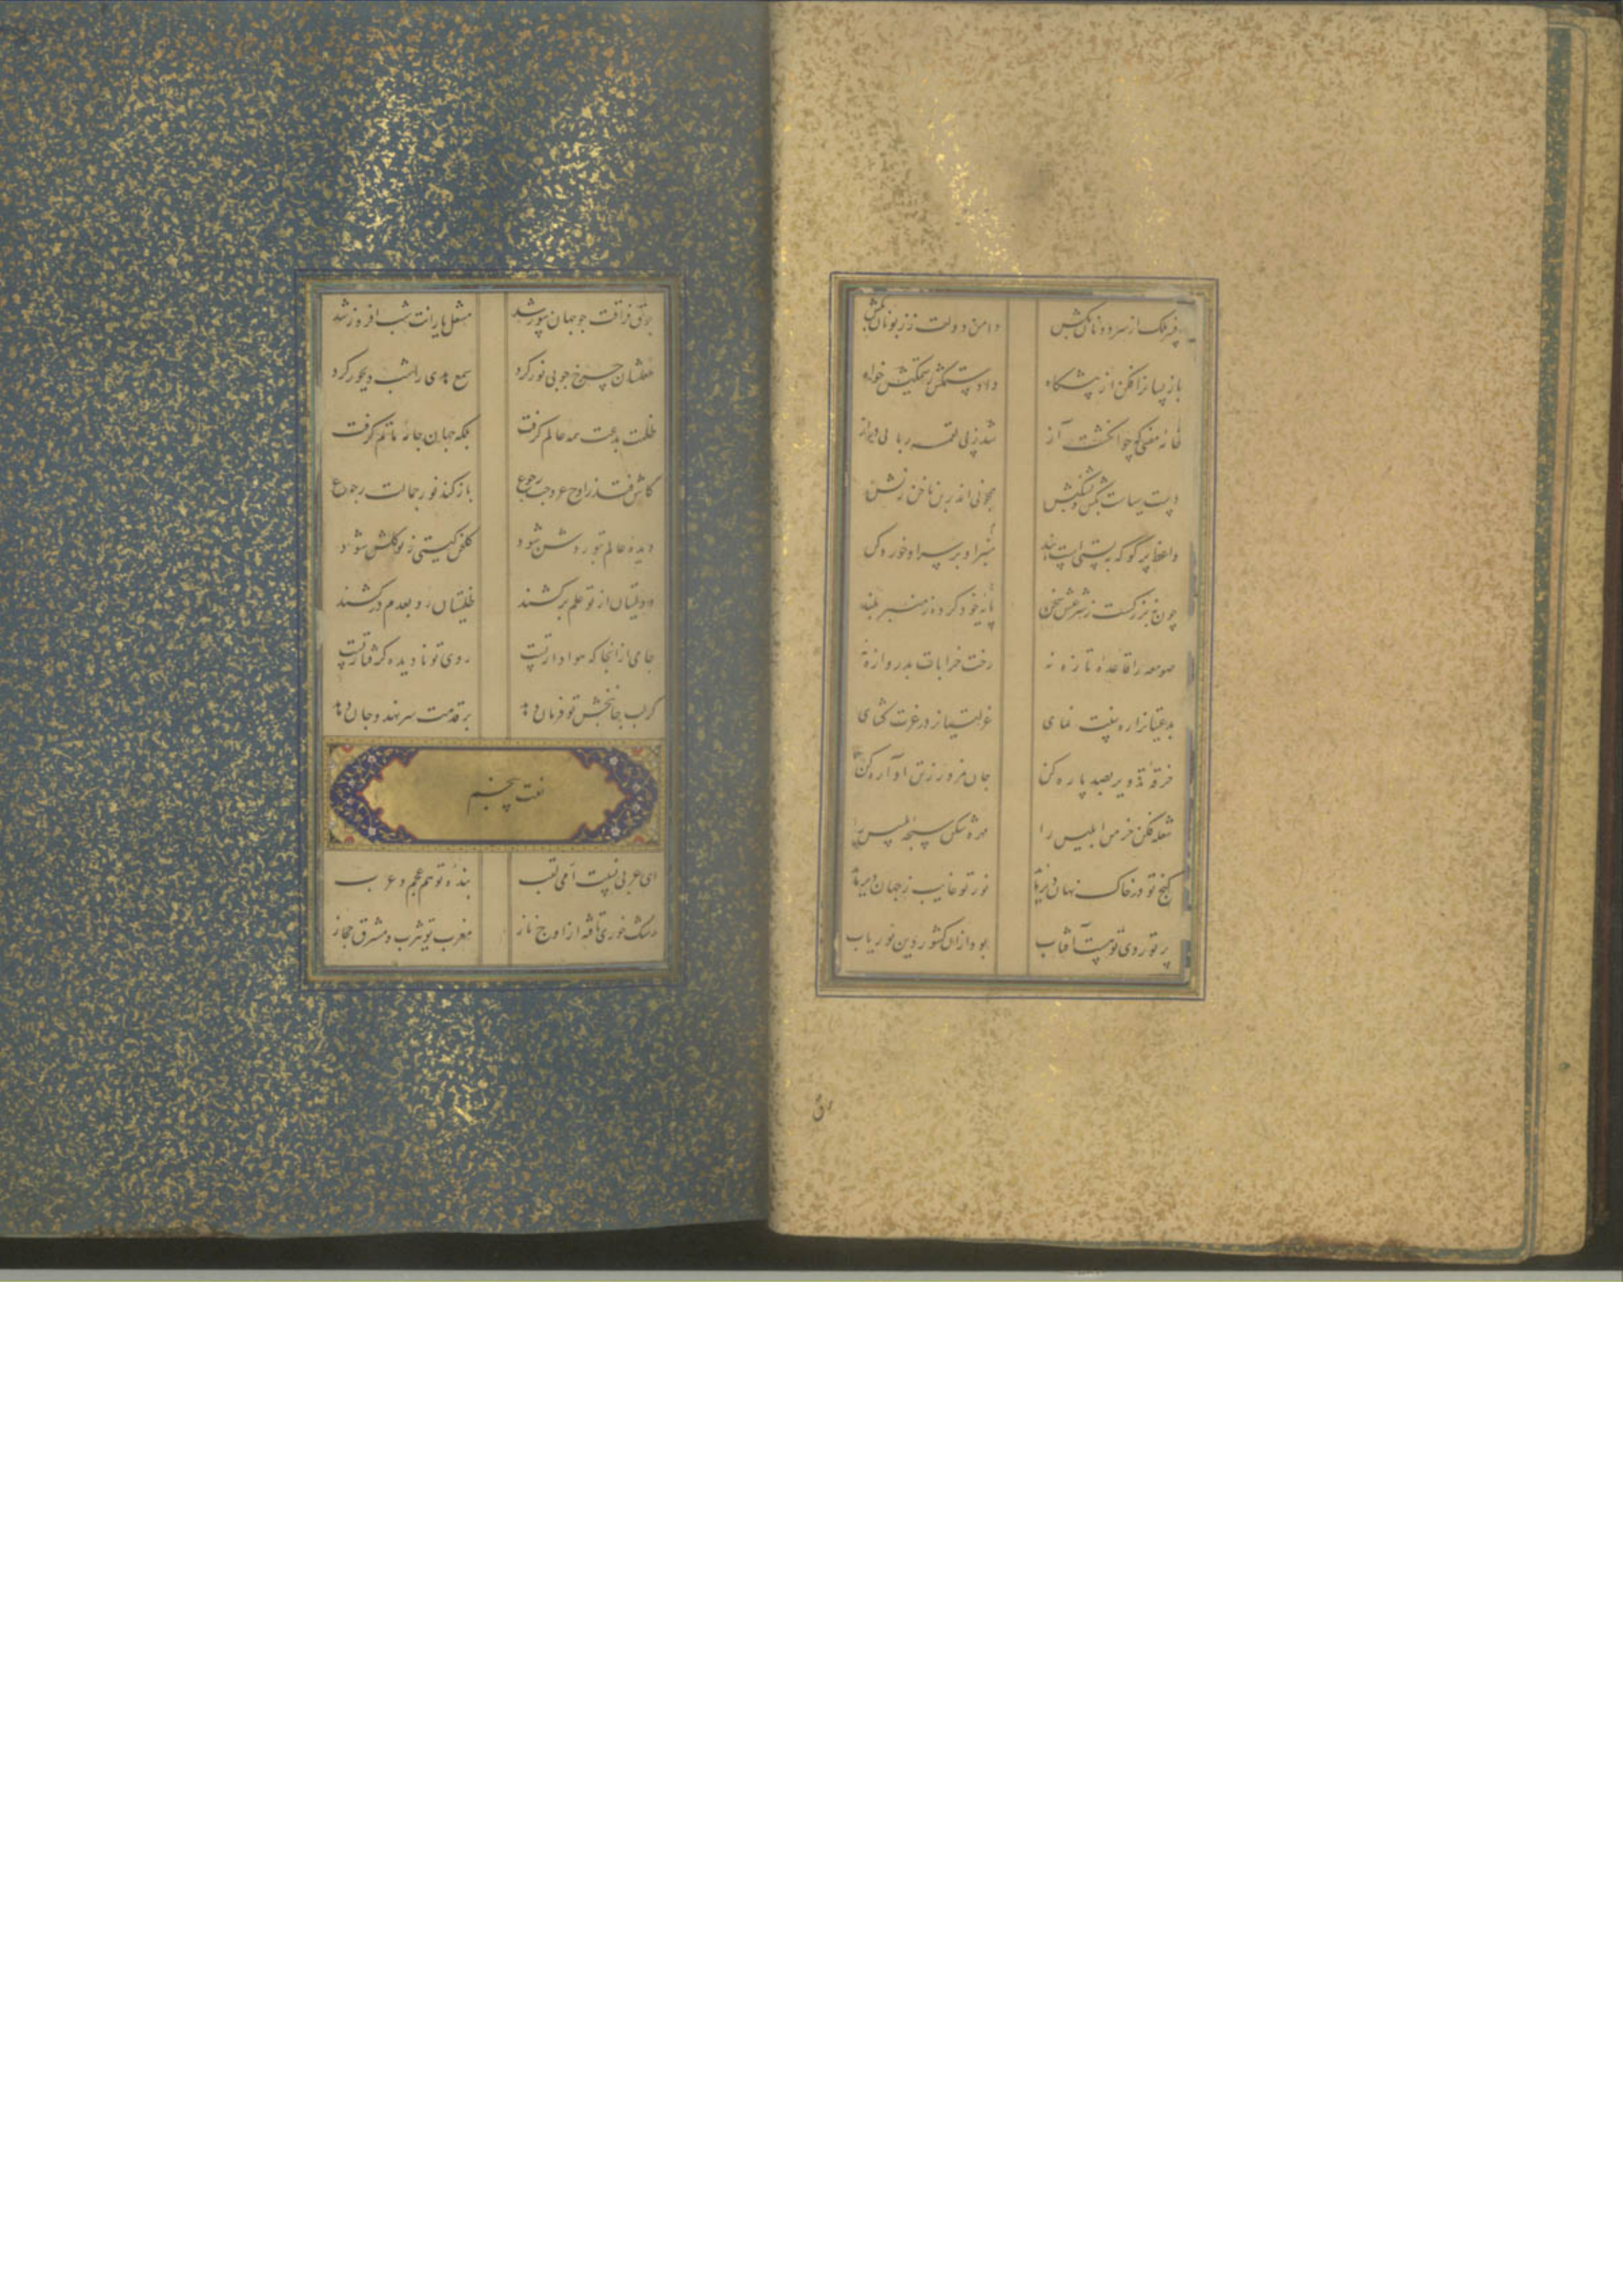 افسر ملک از سر دونان بکش دامن دولت ز زبونان بکش
باز پسان را فکن از پیشگاه داد ستمکش ز ستمکیش خواه
خامه مفتی که چو انگشت آز شد ز پی لقمه ربایی دراز
دست سیاست بکش و بشکنش همچو نی اندر بن ناخن زنش
واعظ پر گو که به پستی است بند
منبر او بر سر او خرد کن
پایه خود کرده ز منبر بلند
چون بزرگیست ز شرعش سخن
صومعه را قاعده تازه نه رخت خرابات به دروازه نه
بدعتیان را ره سنت نمای عزلتیان را در عزت گشای
خرقه تزویر بصد پاره کن جان مزور ز تن آواره کن
شعله فکن خرمن ابلیس را مهره شکن سبحه تلبیس را
گنج تو در خاک نهان دیر ماند نور تو غایب ز جهان دیر ماند
پرتو روی تو چو هست آفتاب بود ازان کشور دین نوریاب
برق فراقت چو جهان سوز شد مشعل یارانت شب افروز شد
مشعلشان چرخ چو بی نور کرد شمع هدی را شب دیجور کرد
ظلمت بدعت همه عالم گرفت بلکه جهان جامه ماتم گرفت
کاش فتد ز اوج عروجت رجوع باز کند نور جمالت رجوع
دیده عالم بتو روشن شود گلخن گیتی ز تو گلشن شود
دولتیان از تو علم برکشند ظلمتیان رو بعدم درکشند
جامی از آنجا که هوادار تست روی تو نادیده گرفتار تست
گر لب جانبخش تو فرمان دهد بر قدمت سر نهد و جان دهد
نعت پنجم
ای عربی نسبت امی لقب بنده تو هم عجم و هم عرب
رشک خوری تافته از اوج ناز مغرب تو یثرب و مشرق حجاز